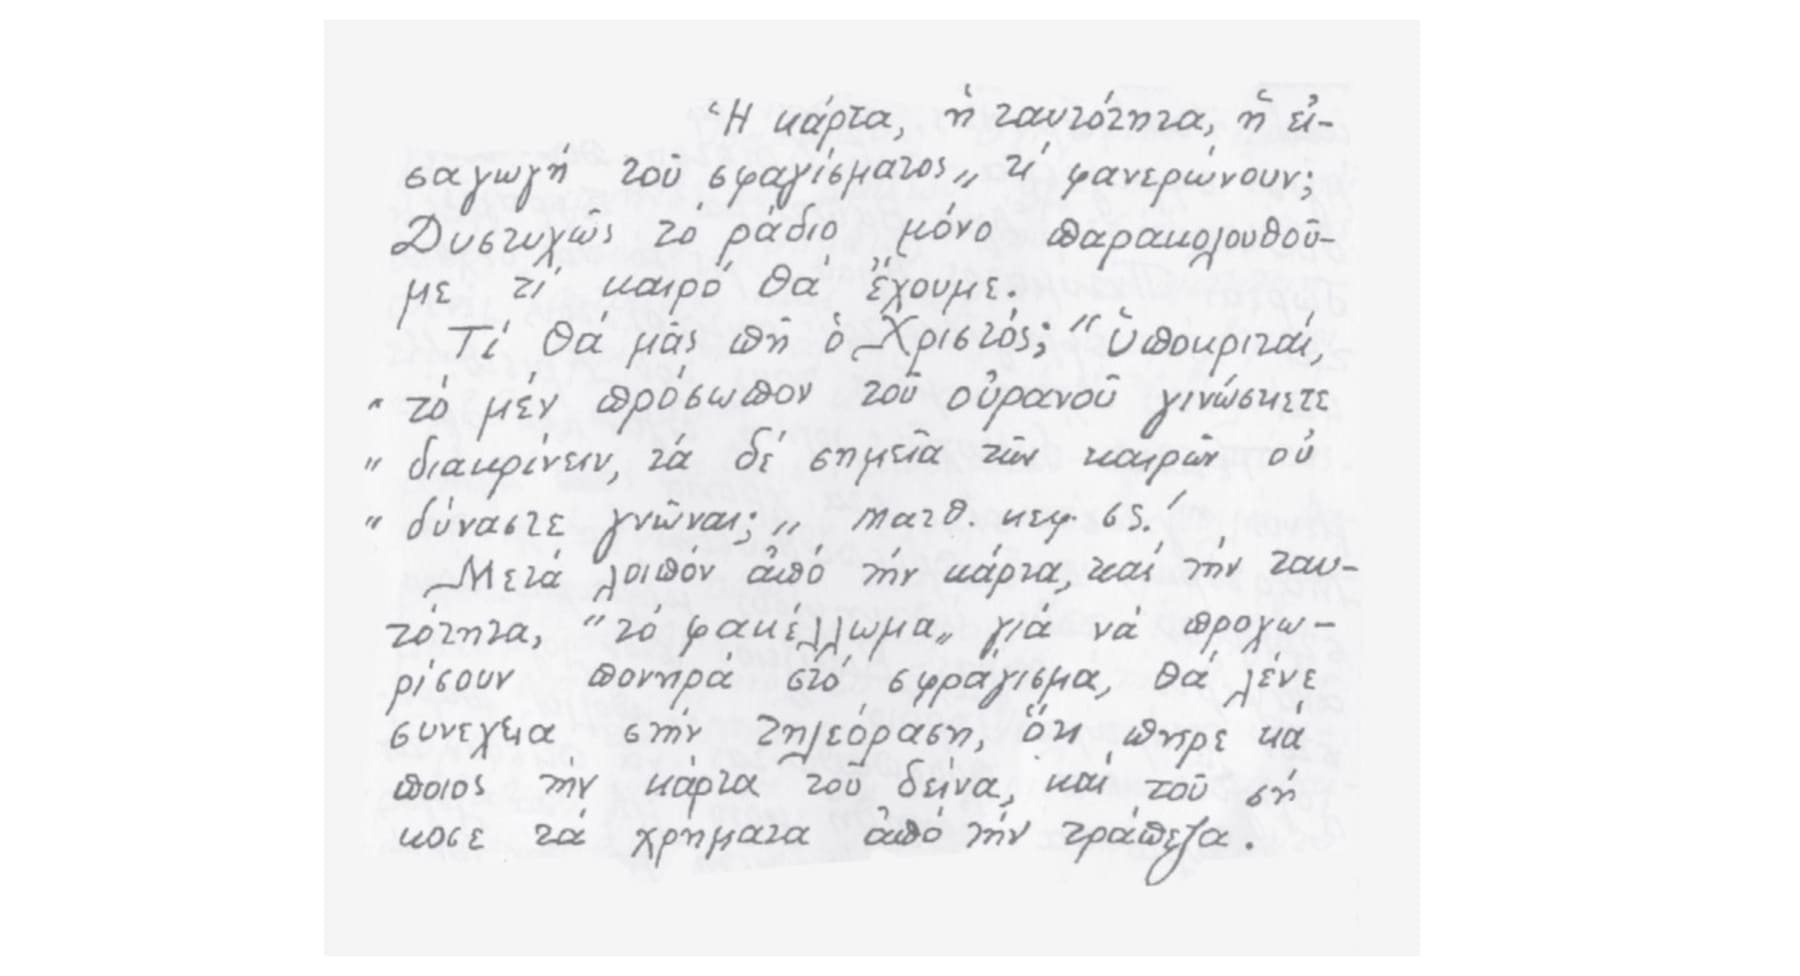 Ἡ κάρτα, ἡ ταυτότητα, ἡ εἰ-
σαγωγή τοῦ σφραγίσματος„ τί φανερώνουν;
Δυστυχῶς τό ράδιο μόνο παρακολουθοῦ-
με τί καιρό θά ἔχουμε.
Τί θά μᾶς πῆ ὁ Χριστός; "Ὑποκριταί,
" τό μέν πρόσωπον τοῦ οὐρανοῦ γινώσκετε
" διακρίνειν, τά δέ σημεῖα τῶν καιρῶν οὐ
" δύναστε γνῶναι;„ Ματθ. κεφ. ις.'
Μετά λοιπόν ἀπό τήν κάρτα, καί τήν ταυ-
τότητα, "τό φακέλλωμα„ γιά νά προχω-
ρίσουν πονηρά στό σφράγισμα, θά λένε
συνεχεια στήν τηλεόραση, ὅτι πηρε κά
ποιος τήν κάρτα τοῦ δείνα, καί τοῦ σή
κοσε τά χρηματα ἀπό τήν τράπεζα.